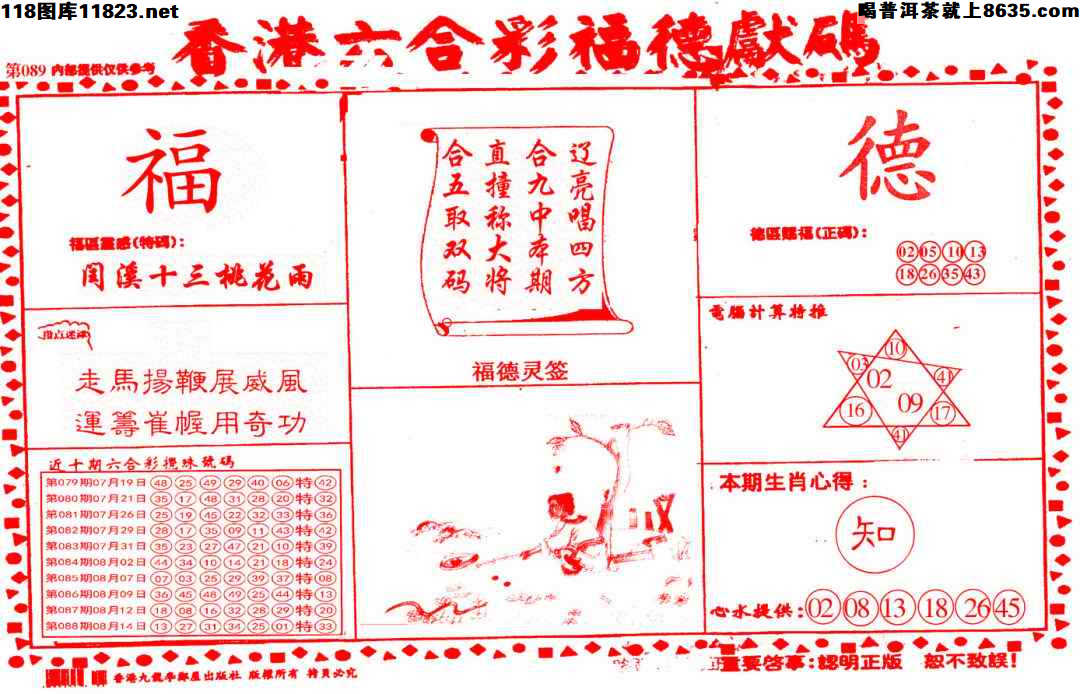 118图库11823.net
喝普洱茶就上8635.com
香港六合彩福德獻碼
第089 内部提供仅供参考
福
福區靈感(特碼):
閏溪十三桃花雨
指点迷津
走馬揚鞭展威風
運籌崔幄用奇功
近十期六合彩攪珠號碼
第079期07月19日 48 25 49 29 40 06 特 42
第080期07月21日 35 17 48 31 28 20 特 32
第081期07月26日 25 19 45 22 32 33 特 36
第082期07月29日 28 17 35 09 11 43 特 42
第083期07月31日 35 23 27 47 21 10 特 39
第084期08月02日 44 34 10 14 21 18 特 24
第085期08月07日 07 03 25 29 39 37 特 08
第086期08月09日 36 45 48 49 25 44 特 13
第087期08月12日 18 08 16 32 28 29 特 20
第088期08月14日 13 27 31 34 25 01 特 33
辽亮唱四方
合九中本期
直撞称大将
合五取双码
福德灵签
德
德區賜福(正碼):
02 05 10 13
18 26 35 43
電腦計算特推
10
03
02
41
16
09
17
41
本期生肖心得:
知
心水提供: 02 08 13 18 26 45
香港九龍李鄭屋出版社 版權所有 拷貝必究
重要啓事:認明正版 恕不致誤!